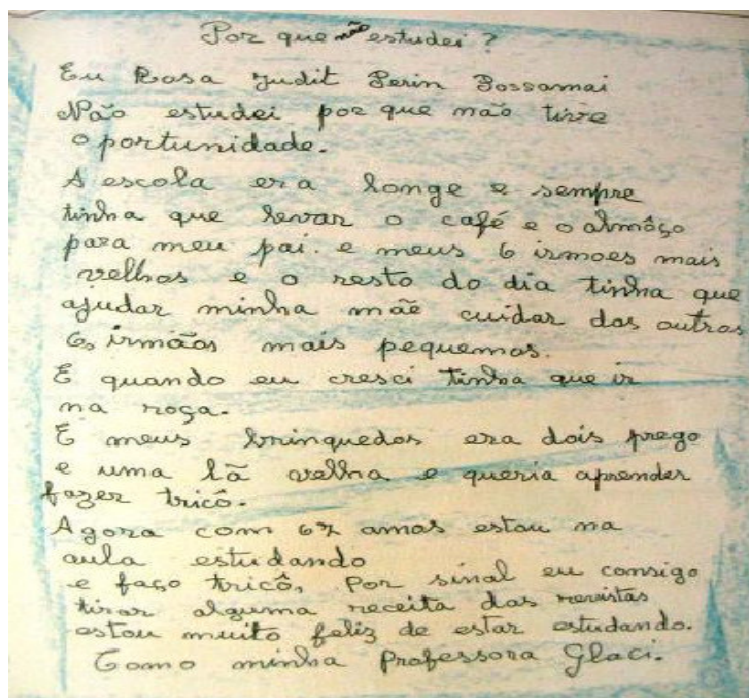 Por que não estudei?
Eu Rosa Judit Perin Bossamai
Não estudei por que não tive
oportunidade.
A escola era longe e sempre
tinha que levar o café e o almôço
para meu pai. e meus 6 irmoes mais
velhos e o resto do dia tinha que
ajudar minha mãe cuidar dos outros
6 irmãos mais pequenos.
E quando eu cresci tinha que ir
na roça.
E meus brinquedos era dois prego
e uma lã velha e queria aprender
fazer tricô.
Agora com 67 anos estou na
aula estudando
e faço tricô, Por sinal eu consigo
tirar alguma receita das revistas
estou muito feliz de estar estudando.
Como minha Professora Glaci.